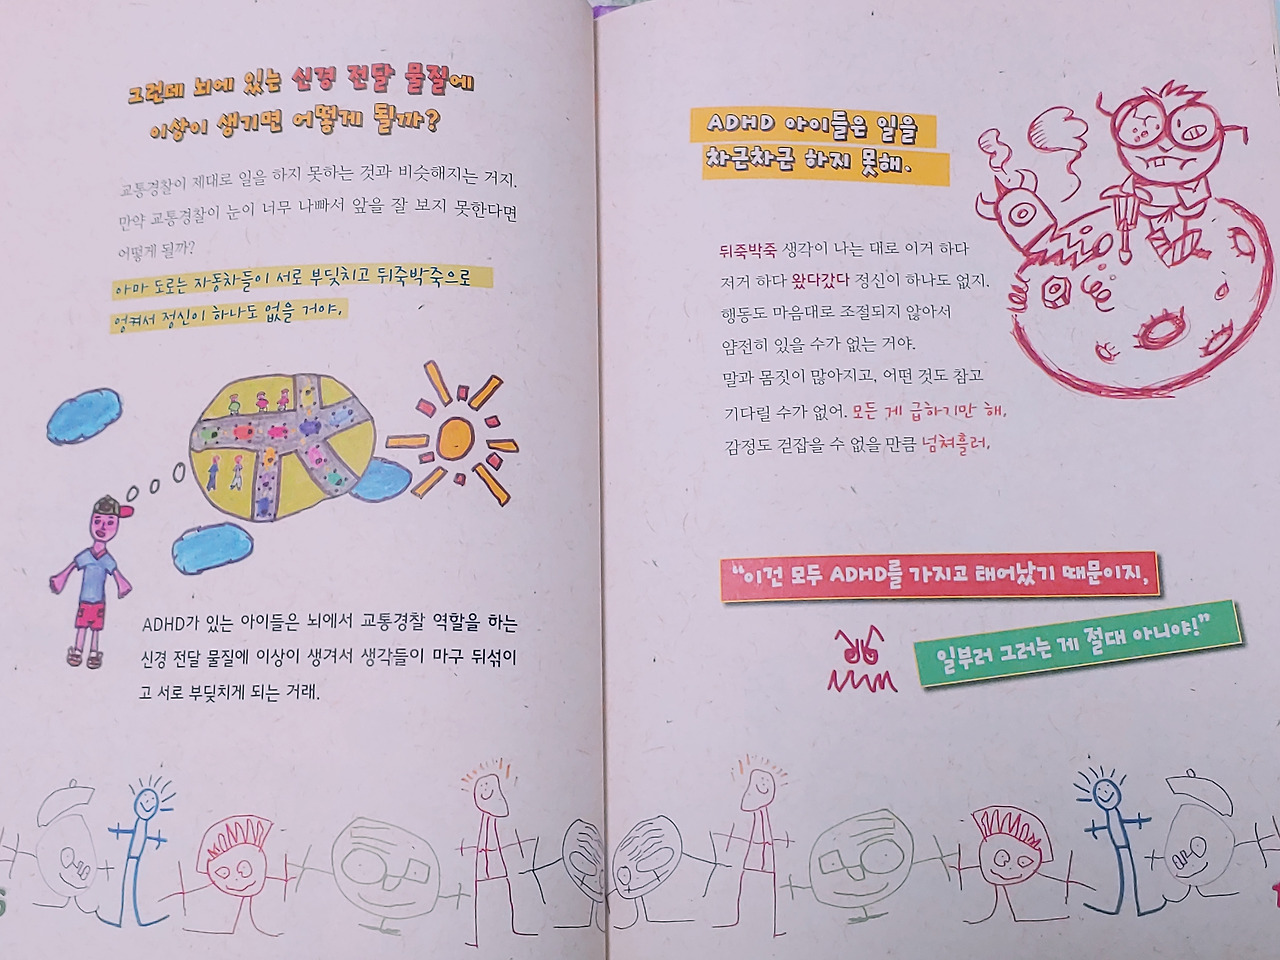 그런데 뇌에 있는 신경 전달 물질에
이상이 생기면 어떻게 될까?
교통경찰이 제대로 일을 하지 못하는 것과 비슷해지는 거지.
만약 교통경찰이 눈이 너무 나빠서 앞을 잘 보지 못한다면
어떻게 될까?
아마 도로는 자동차들이 서로 부딪치고 뒤죽박죽으로
엉켜서 정신이 하나도 없을 거야.
ADHD가 있는 아이들은 뇌에서 교통경찰 역할을 하는
신경 전달 물질에 이상이 생겨서 생각들이 마구 뒤섞이
고 서로 부딪치게 되는 거래.
ADHD 아이들은 일을
차근차근 하지 못해.
뒤죽박죽 생각이 나는 대로 이거 하다
저거 하다 왔다갔다 정신이 하나도 없지.
행동도 마음대로 조절되지 않아서
얌전히 있을 수가 없는 거야.
말과 몸짓이 많아지고, 어떤 것도 참고
기다릴 수가 없어. 모든 게 급하기만 해.
감정도 걷잡을 수 없을 만큼 넘쳐흘러.
“이건 모두 ADHD를 가지고 태어났기 때문이지,
일부러 그러는 게 절대 아니야!”